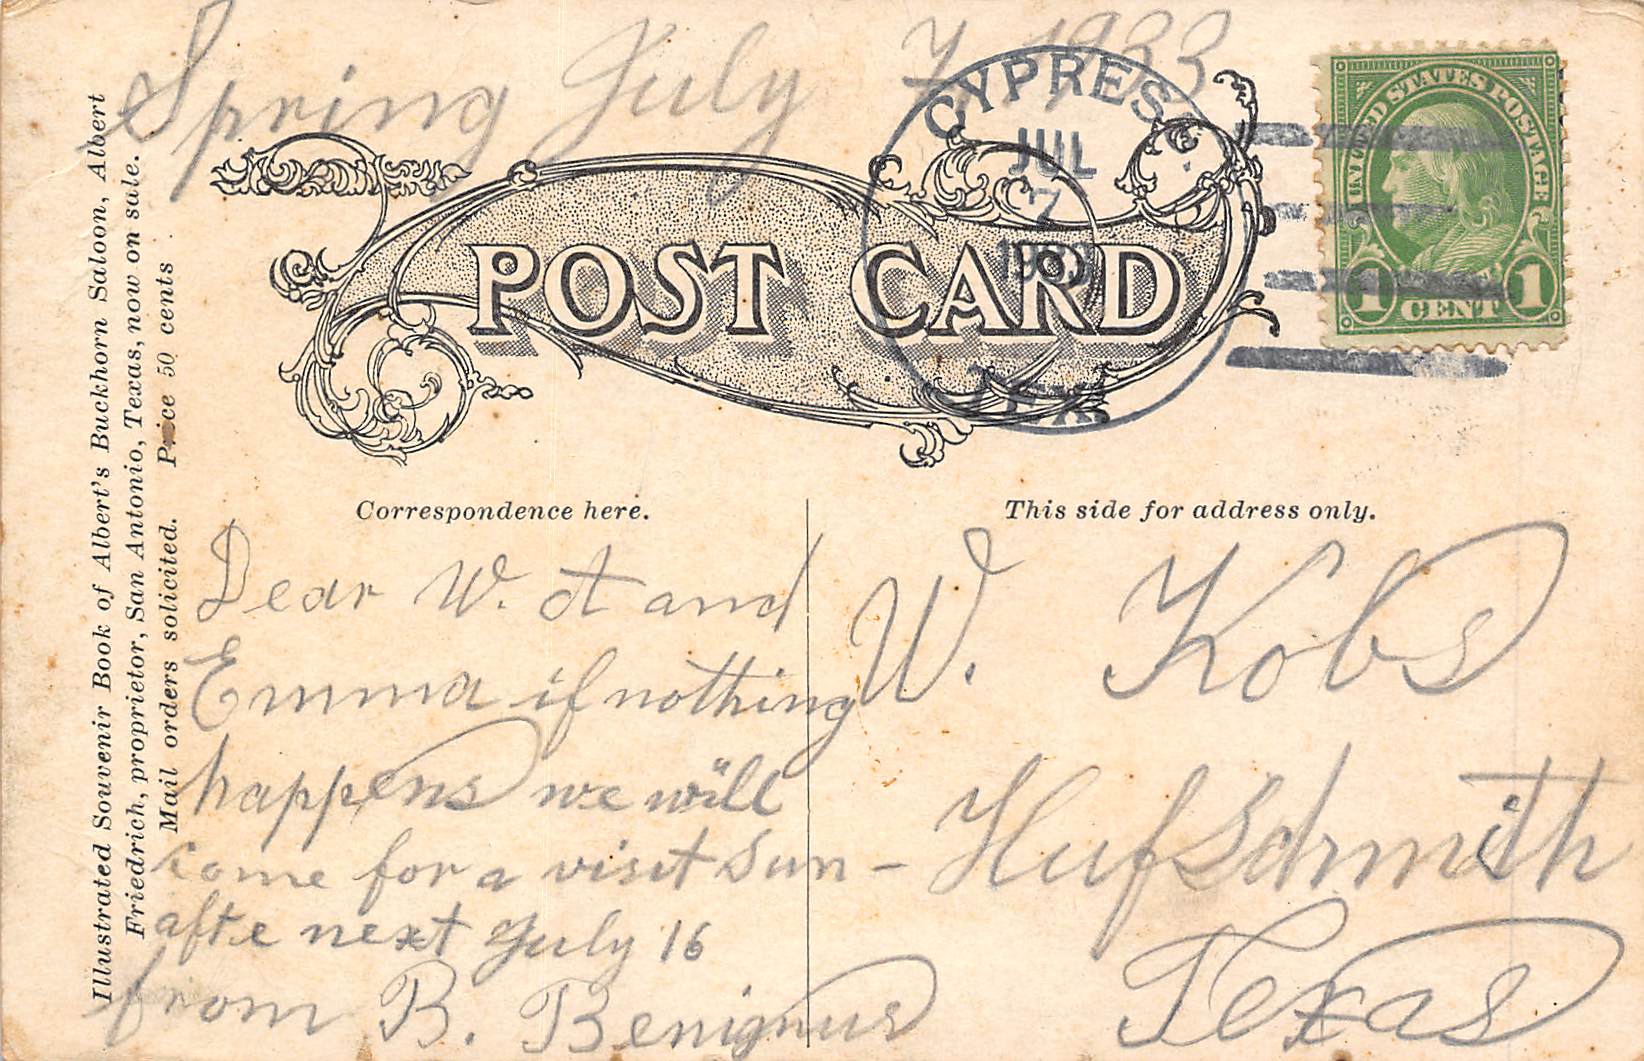 Spring July 7, 1933
CYPRESS
JUL
7
1933
TEX.
UNITED STATES POSTAGE
1 CENT 1
POST CARD
Illustrated Souvenir Book of Albert's Buckhorn Saloon, Albert
Friedrich, proprietor, San Antonio, Texas, now on sale.
Mail orders solicited. Price 50 cents
Correspondence here.
This side for address only.
Dear W. A and
Emma if nothing
happens we will
come for a visit Sun-
afte next July 16
from B. Benignus
W. Kobs
Hufschmith
Texas